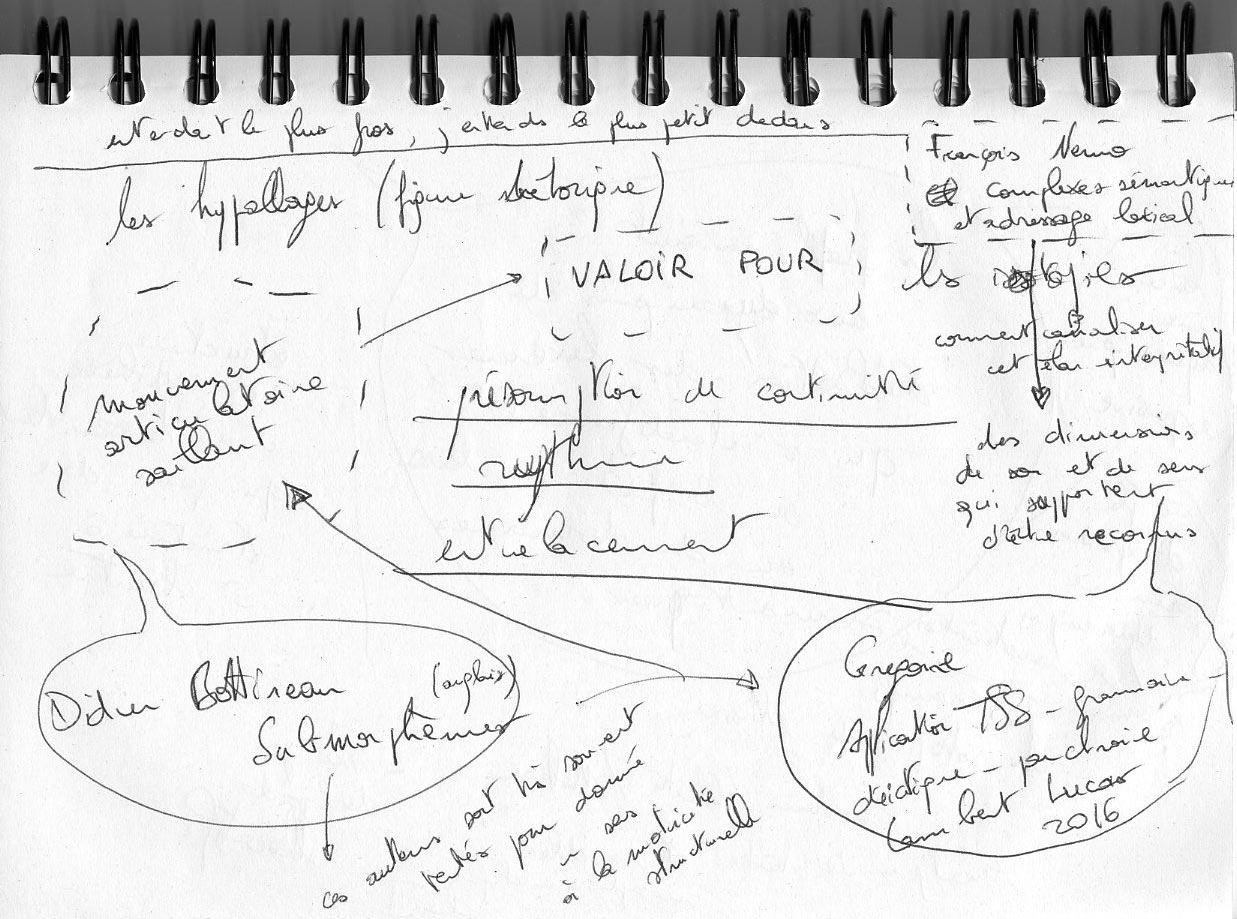 entendant le plus gros, j'entends le plus petit dedans
les hypallages (figure rhétorique)
François Nemo
complexes sémantiques
et adressage lexical
VALOIR POUR
les
comment canaliser
cet élan interprétatif
mouvement
articulatoire
saillant
présomption de continuité
rythme
entrelacement
des dimensions
de son et de sens
qui supportent
d'être reconnus
Didier Bottineau
(anglais)
Submorphèmes
ces auteurs sont très souvent
tentés pour donner
un sens
à la motricité
structurelle
Gregoire
Application TSS - grammaire -
déictique - ponctuaire
Lambert Lucas
2016